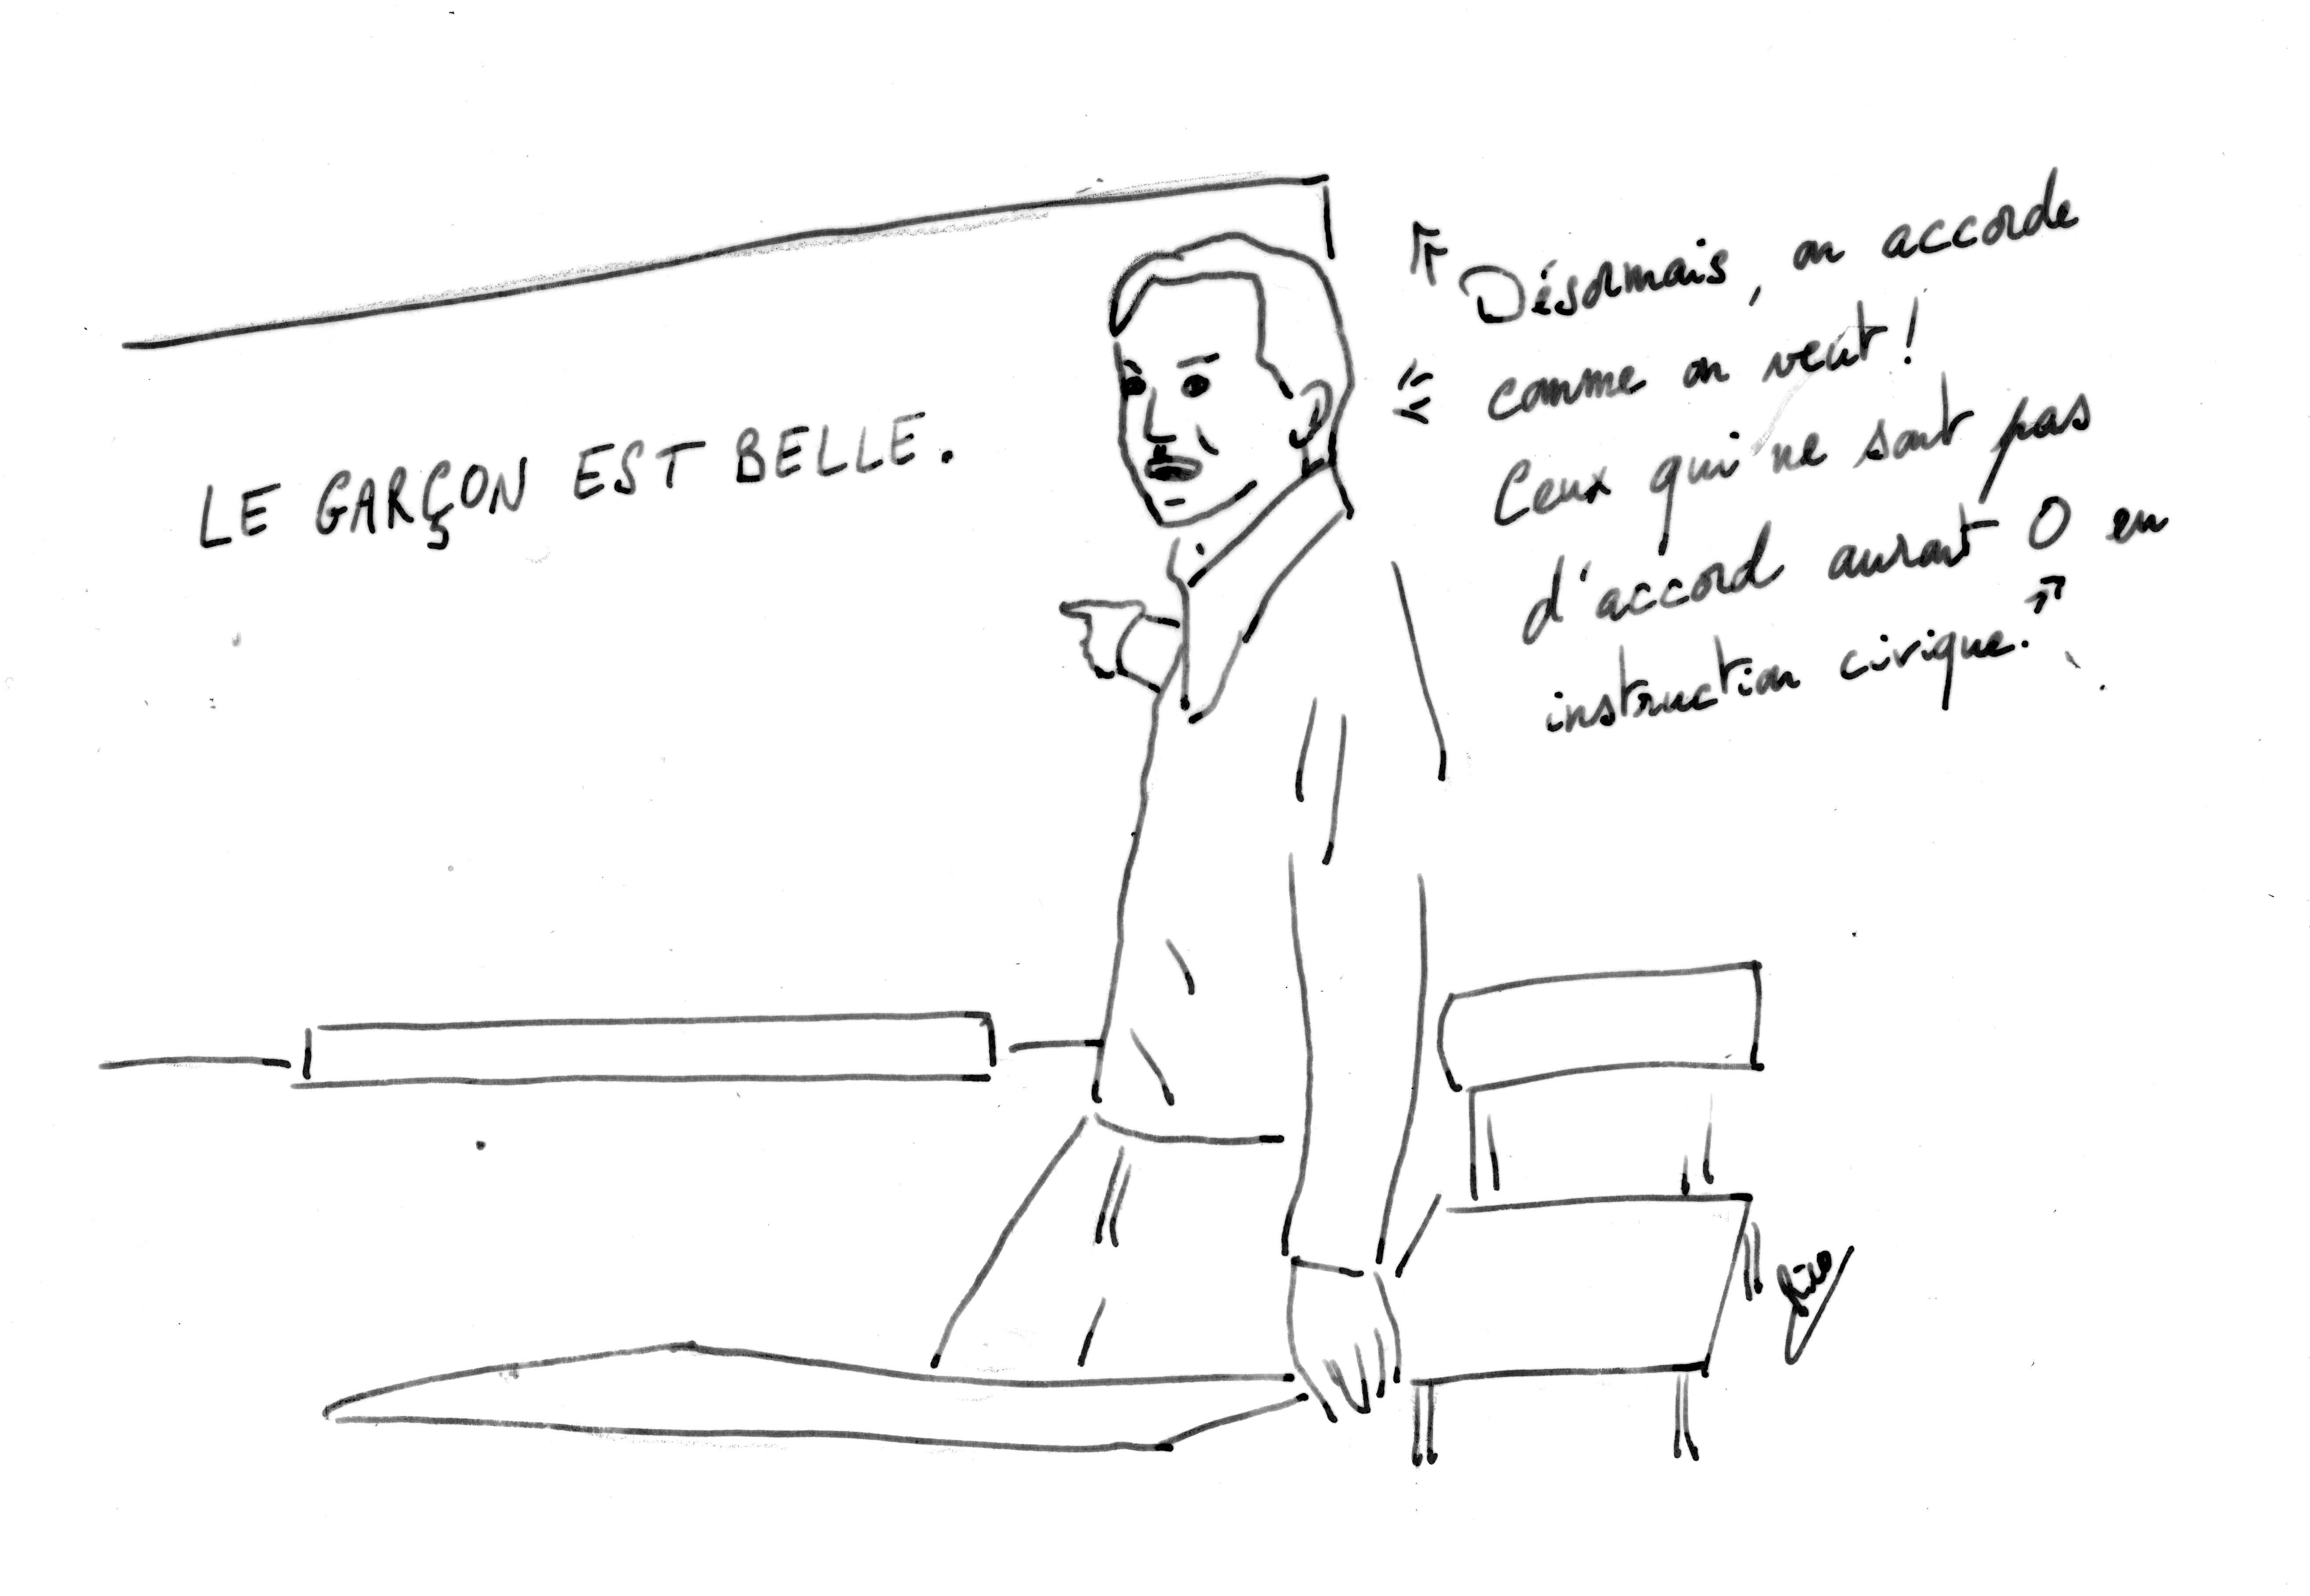 LE GARÇON EST BELLE.
Désormais, on accorde
comme on veut !
Ceux qui ne sont pas
d'accord auront 0 en
instruction civique.